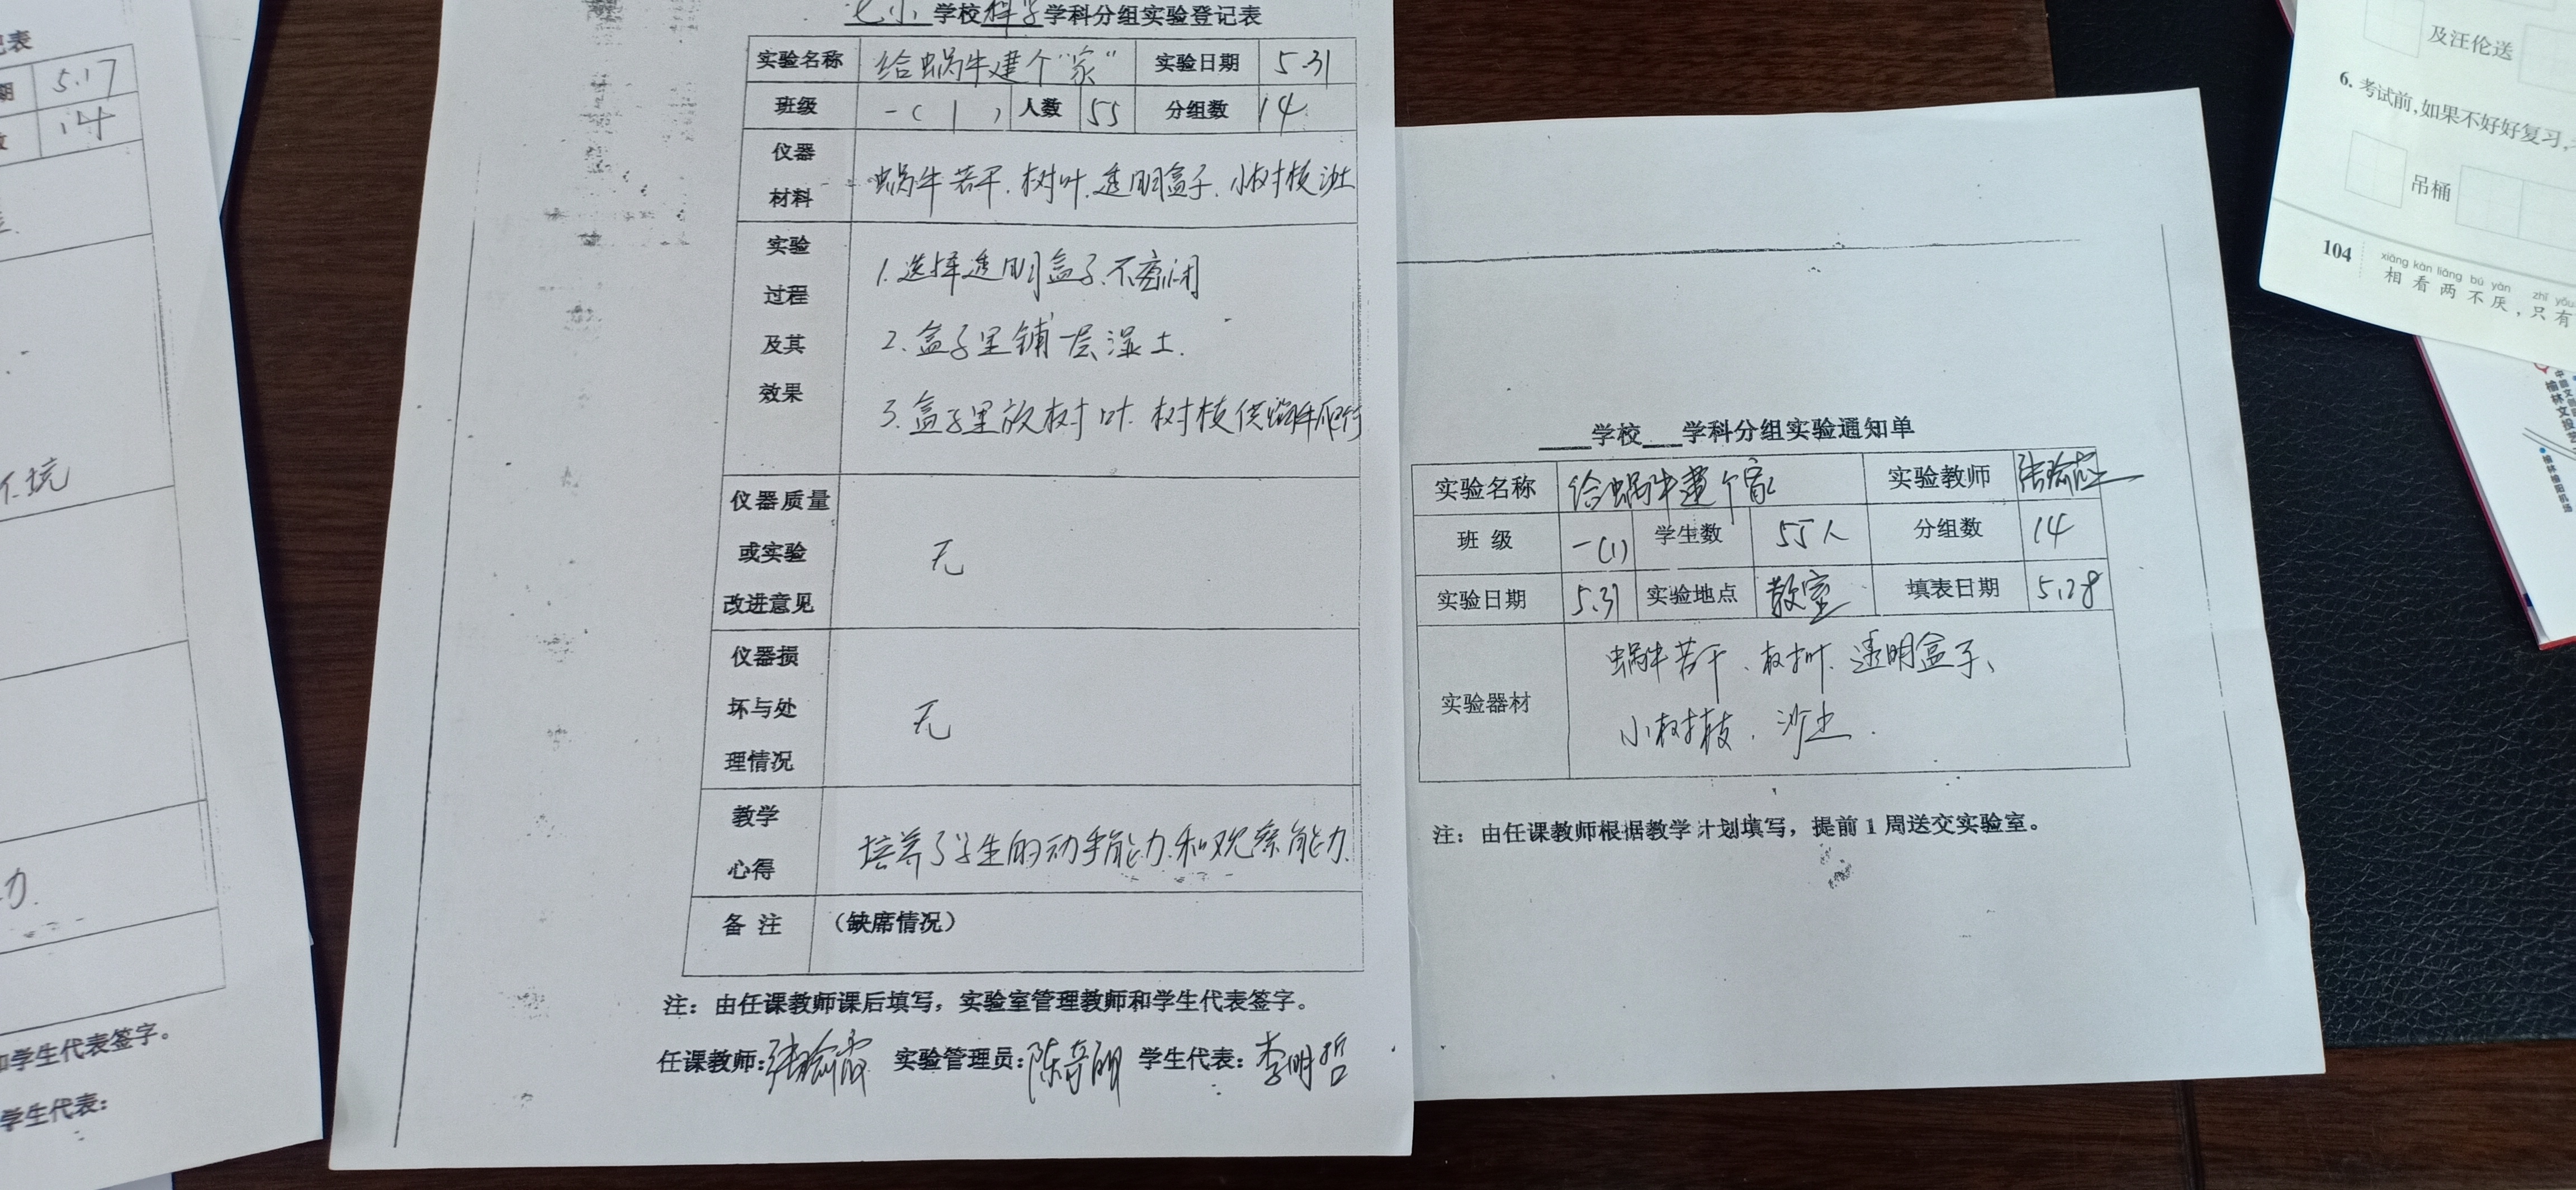 表
期 5.17
数 14
环境
力.
和学生代表签字。
学生代表:
七小 学校 科学 学科分组实验登记表
实验名称 给蜗牛建个“家” 实验日期 5.31
班级 一(1) 人数 55 分组数 14
仪器
材料
蜗牛若干、树叶、透明盒子、小树枝、沙土
实验
过程
及其
效果
1.选择透明盒子、不密闭
2.盒子里铺一层湿土.
3.盒子里放树叶、树枝供蜗牛爬行
仪器质量
或实验
改进意见
无
仪器损
坏与处
理情况
无
教学
心得
培养了学生的动手能力和观察能力.
备 注 (缺席情况)
注: 由任课教师课后填写,实验室管理教师和学生代表签字。
任课教师: 实验管理员: 学生代表: 李明哲
___学校___学科分组实验通知单
实验名称 给蜗牛建个家 实验教师
班 级 一(1) 学生数 55人 分组数 14
实验日期 5.31 实验地点 教室 填表日期 5.28
实验器材
蜗牛若干、树叶、透明盒子、
小树枝、沙土.
注: 由任课教师根据教学计划填写,提前1周送交实验室。
及汪伦送
6. 考试前,如果不好好复习,
吊桶
104
xiāng kàn liǎng bú yàn zhǐ yǒu
相看两不厌,只有